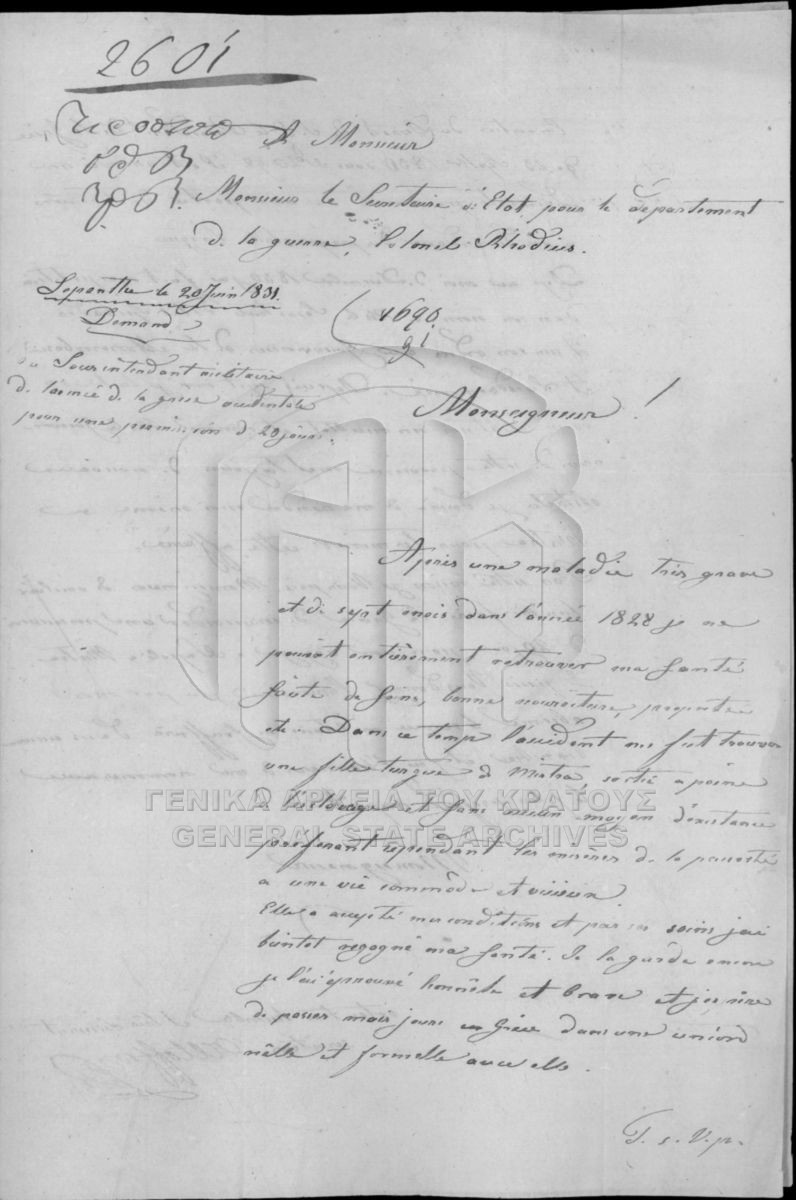 2601
A Monsieur
Monsieur le Secretaire d'Etat pour le département
de la guerre, Colonel Rhodius.
Lepanthe le 20 Juin 1831.
Demand
1690
Sousintendant militaire
de l'armée de la grece occidentale
pour une permission d 20 jours.
Monseigneur!
Après une maladie très grave
et de sept mois dans l'année 1828 je ne
pouvait entièrement retrouver ma santé
faute de soins, bonne nourriture, propreté
etc. Dans ce temp l'accident me fut trouver
une fille turque d Mistra, sortie apeine
de l'esclavage et sans aucun moyen d'existance
preferant cependant les misères de la pauvreté
a une vie commôde et
Elle a accepté mes conditions et par ses soins j'ai
bientot regagné ma santé. Je la garde encore
je l'ai éprouvé honnête et brave et
de passer mais jours en Grèce dans une union
et formelle avec elle.
T. s. V. p.
ΓΕΝΙΚΑ ΑΡΧΕΙΑ ΤΟΥ ΚΡΑΤΟΥΣ
GENERAL STATE ARCHIVES